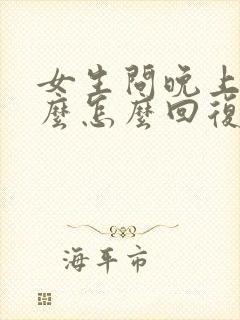 女生問晚上
麼怎麼回復
海平市